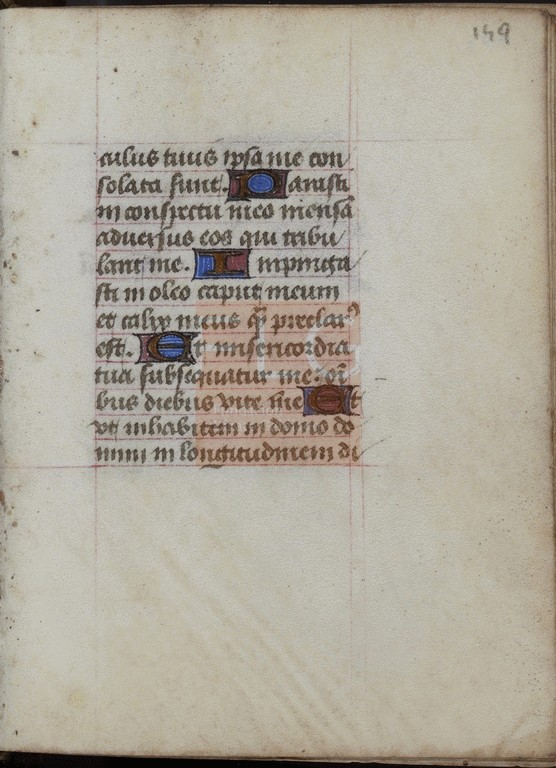 149
culus tuus ipsa me con
solata sunt. Parasti
in conspectu meo mensā
adversus eos qui tribu
lant me. Impingua
sti in oleo caput meum
et calix meus q̄ preclar
est. Et misericordia
tua subsequatur me. oī
bus diebus vite me Et
vt inhabitem in domo do
mini in longitudinem di